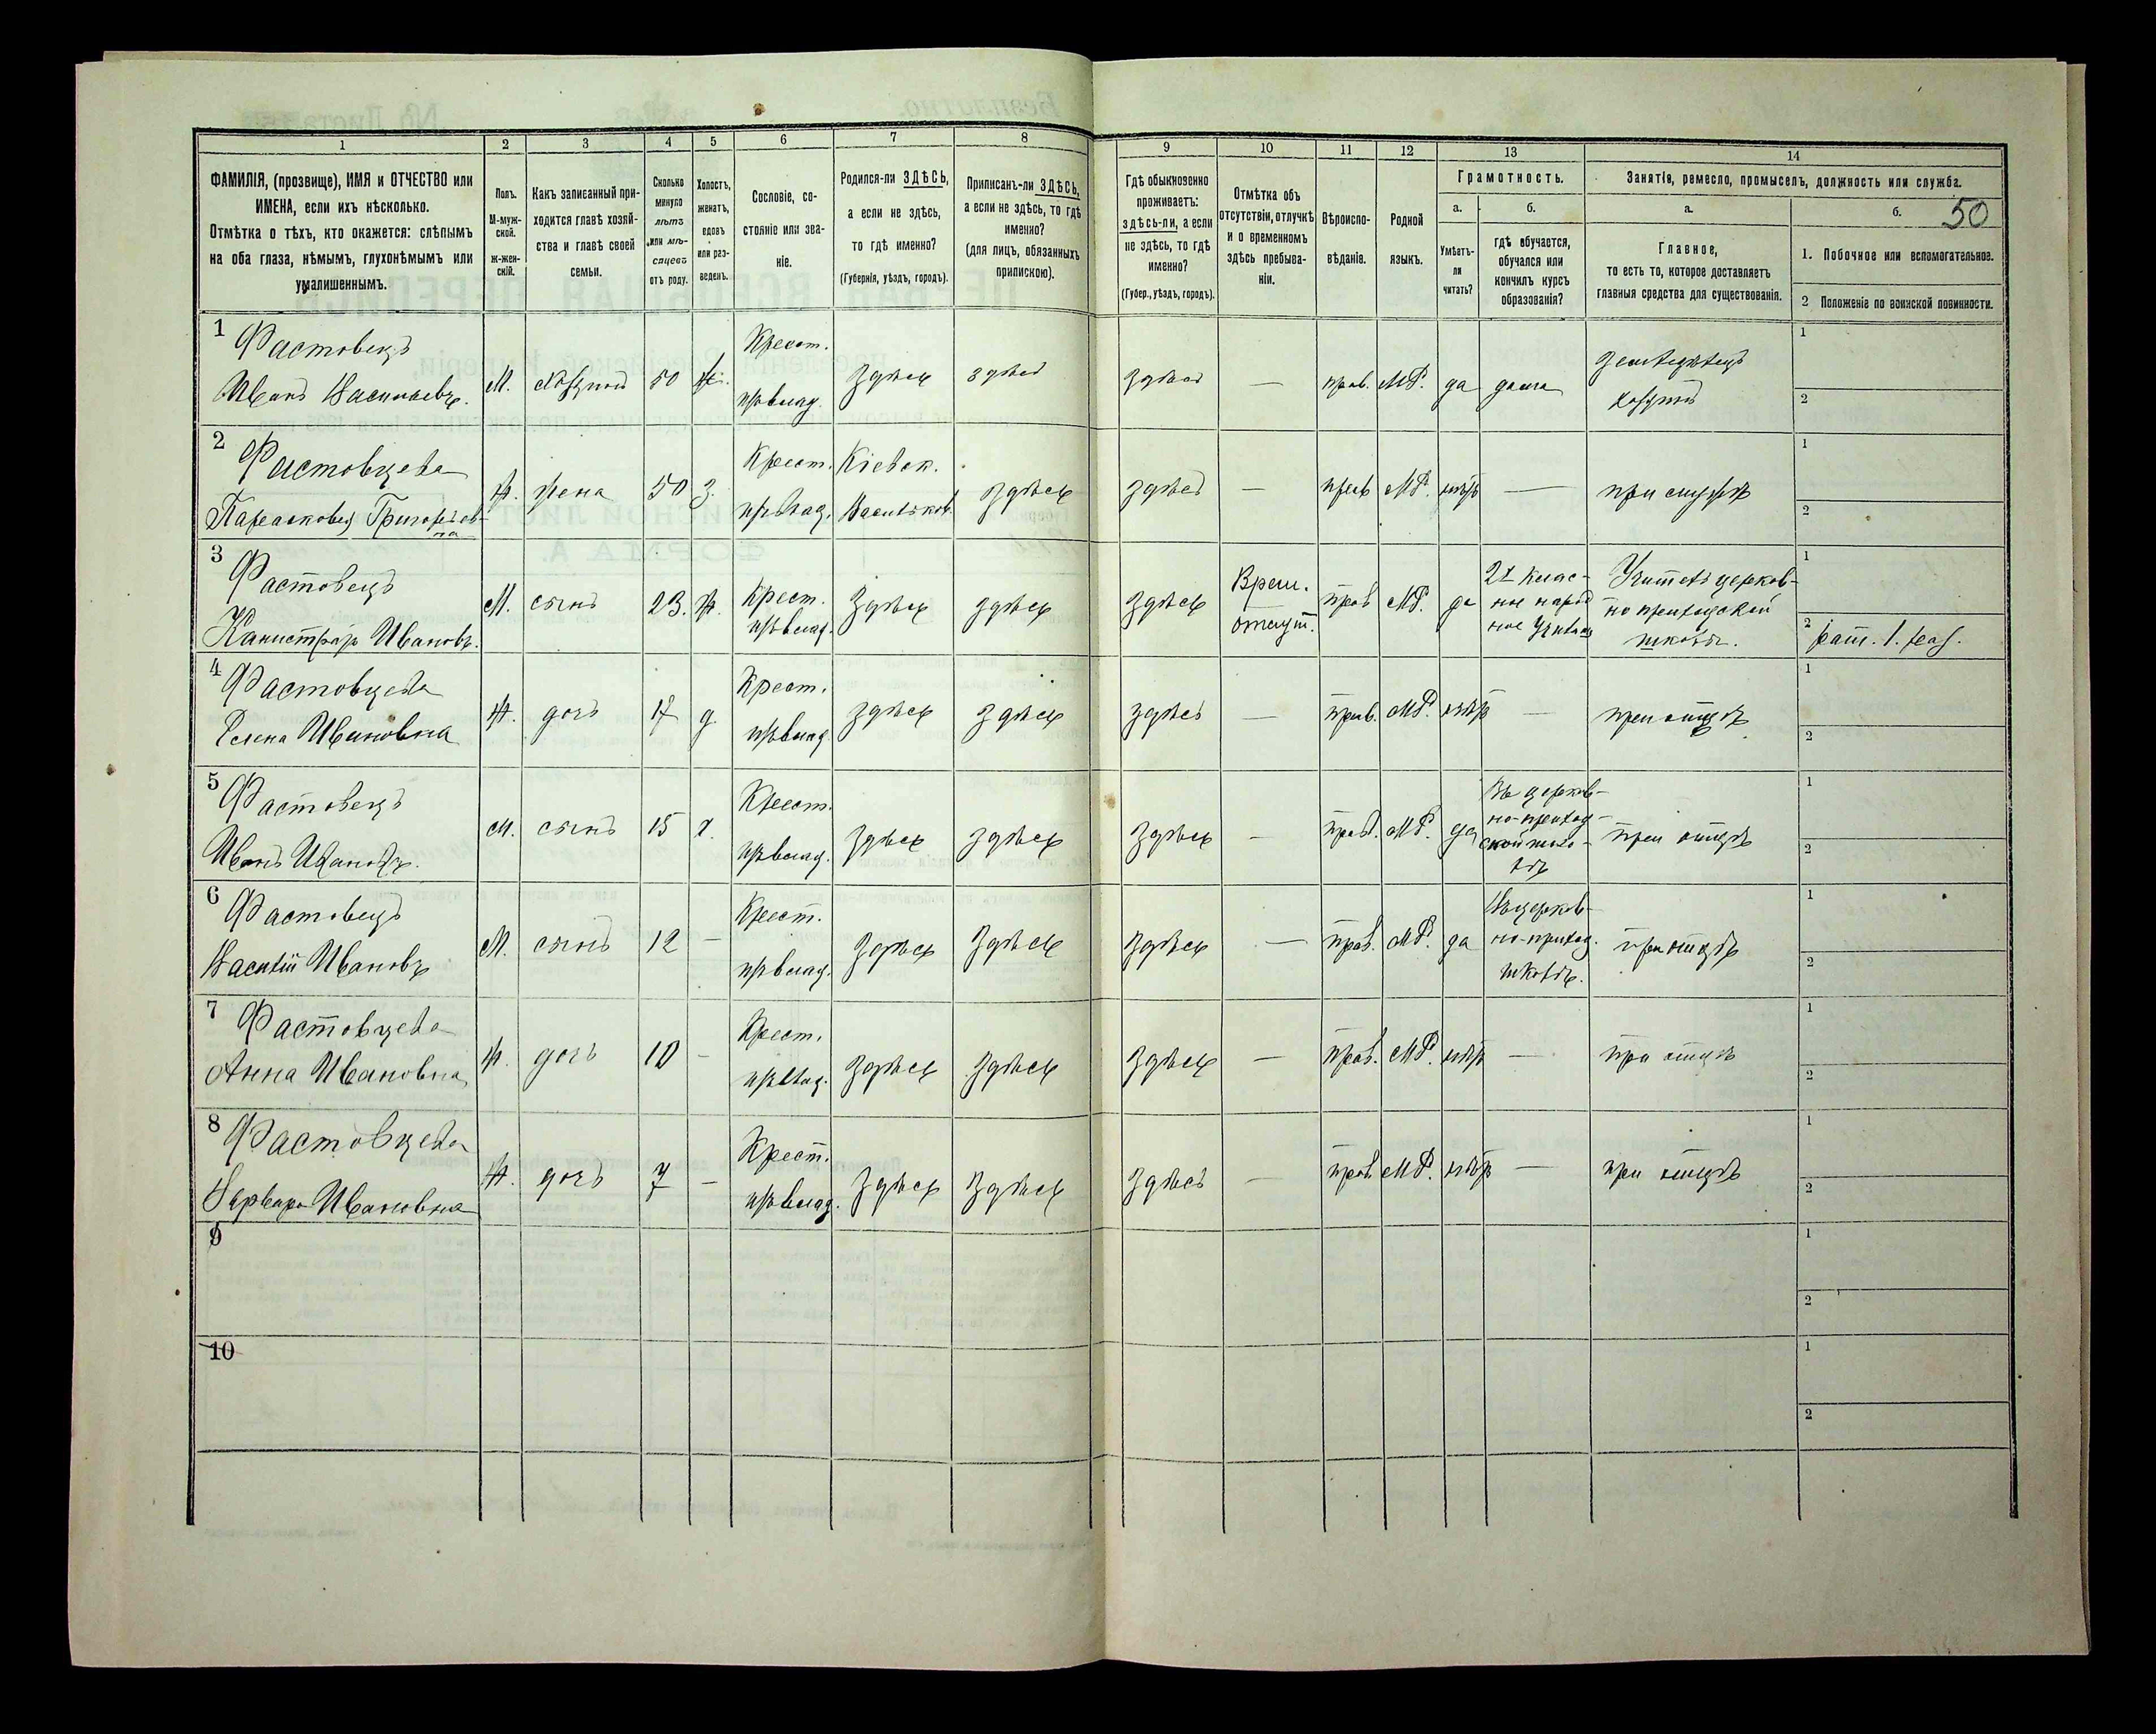 1 2 3 4 5 6 7 8 9 10 11 12 13 14
ФАМИЛІЯ, (прозвище), ИМЯ и ОТЧЕСТВО или
ИМЕНА, если ихъ нѣсколько.
Отмѣтка о тѣхъ, кто окажется: слѣпымъ
на оба глаза, нѣмымъ, глухонѣмымъ или
умалишеннымъ.
Полъ.
М-муж-
ской.
ж-жен-
скій.
Какъ записанный при-
ходится главѣ хозяй-
ства и главѣ своей
семьи.
Сколько
минуло
лѣтъ
или мѣ-
сяцевъ
отъ роду.
Холостъ,
женатъ,
вдовъ
или раз-
веденъ.
Сословіе, со-
стояніе или зва-
ніе.
Родился-ли ЗДѢСЬ,
а если не здѣсь,
то гдѣ именно?
(Губернія, уѣздъ, городъ).
Приписанъ-ли ЗДѢСЬ,
а если не здѣсь, то гдѣ
именно?
(для лицъ, обязанныхъ
припискою).
Гдѣ обыкновенно
проживаетъ:
здѣсь-ли, а если
не здѣсь, то гдѣ
именно?
(Губер., уѣздъ, городъ).
Отмѣтка объ
отсутствіи, отлучкѣ
и о временномъ
здѣсь пребыва-
ніи.
Вѣроиспо-
вѣданіе.
Родной
языкъ.
Грамотность.
а.
Умѣетъ-
ли
читать?
б.
гдѣ обучается,
обучался или
кончилъ курсъ
образованія?
Занятіе, ремесло, промыселъ, должность или служба.
а.
Главное,
то есть то, которое доставляетъ
главныя средства для существованія.
б.
50
1. Побочное или вспомогательное.
2 Положеніе по воинской повинности.
1 Фастовецъ
Иванъ Васильевъ.
М. хозяинъ 50 ж.
Крест.
здѣсь здѣсь здѣсь — прав. МР. да дома
земледѣлецъ
хозяинъ
1
2
2 Фастовцева
Григорьев-
на
ж. жена 50 з.
Крест.
Кіевск.
Васильков.
здѣсь здѣсь — прав. МР. нѣтъ —
при мужѣ
1
2
3 Фастовецъ
Калистратъ Ивановъ.
М. сынъ 23. ж.
Крест.
здѣсь здѣсь здѣсь
Врем.
отсут.
прав МР. да
2х клас-
ное народ
ное училищ
Учитель церков-
но приходской
школы.
1
2 рат. 1. раз.
4 Фастовцева
Елена Ивановна
ж. дочь 17 д
Крест.
здѣсь здѣсь здѣсь — прав. МР. нѣтъ —
при отцѣ
1
2
5 Фастовецъ
Иванъ Ивановъ.
М. сынъ 15 х.
Крест.
здѣсь здѣсь здѣсь — прав. МР. да
Въ церков-
но-приход-
ской шко-
лѣ
при отцѣ
1
2
6 Фастовецъ
Василій Ивановъ
М. сынъ 12 —
Крест.
здѣсь здѣсь здѣсь — прав. МР. да
Въ церков-
но-приход.
школѣ.
при отцѣ
1
2
7 Фастовцева
Анна Ивановна
ж. дочь 10 —
Крест.
здѣсь здѣсь здѣсь — прав. МР. нѣтъ —
при отцѣ
1
2
8 Фастовцева
Варвара Ивановна
ж. дочь 7 —
Крест.
здѣсь здѣсь здѣсь — прав МР. нѣтъ —
при отцѣ
1
2
9
1
2
10
1
2